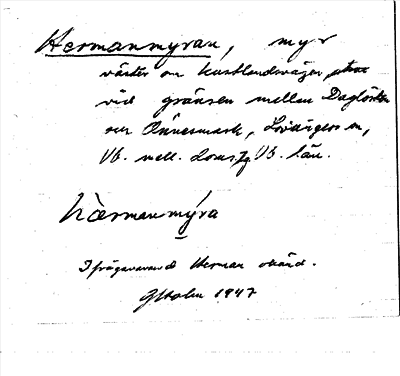 Hermanmyran, myr
väster om kustlandsvägen
vid gränsen mellan Daglösten
och Ånäsmark, Lövångers sn,
Vb. län.
hærmanmýra
Ifrågavarande Herman okänd.
GHolm 1947